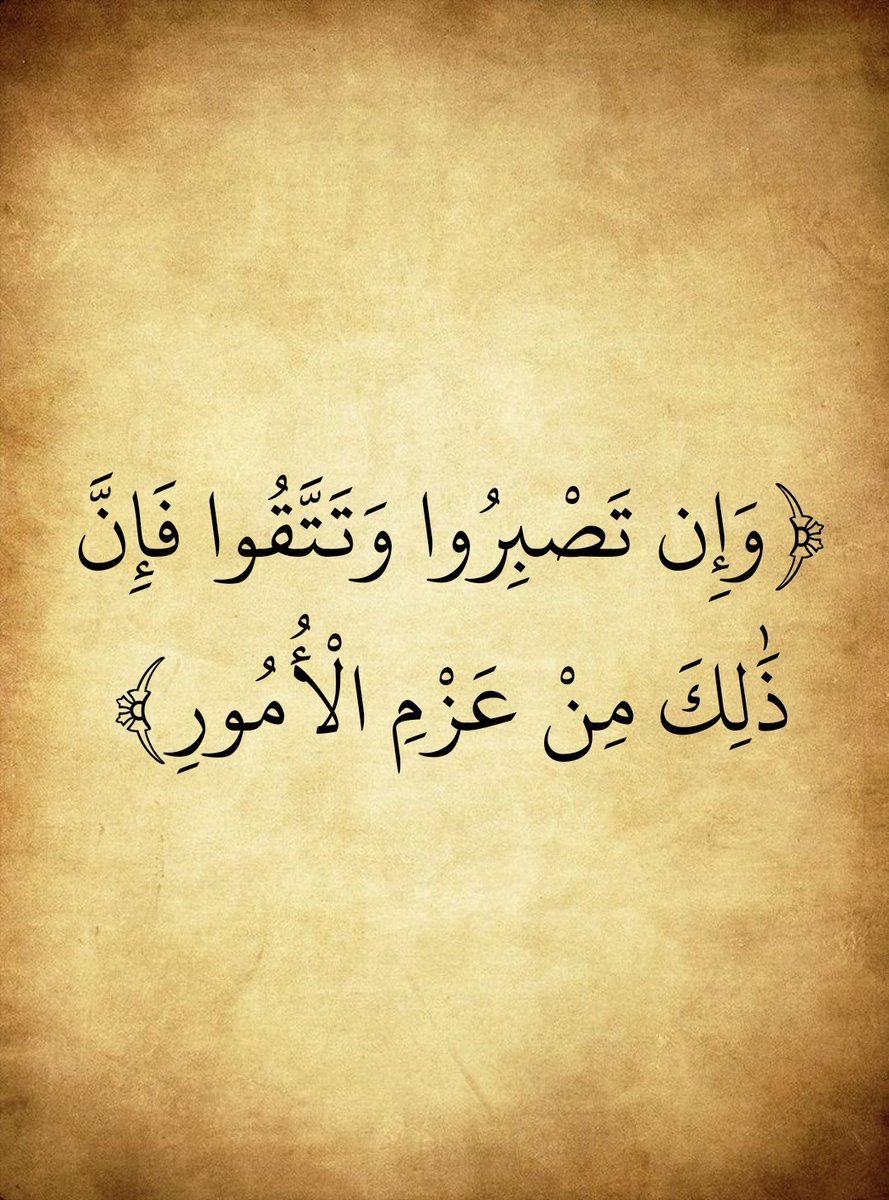 ﴿وَإِن تَصْبِرُوا وَتَتَّقُوا فَإِنَّ
ذَٰلِكَ مِنْ عَزْمِ الْأُمُورِ﴾